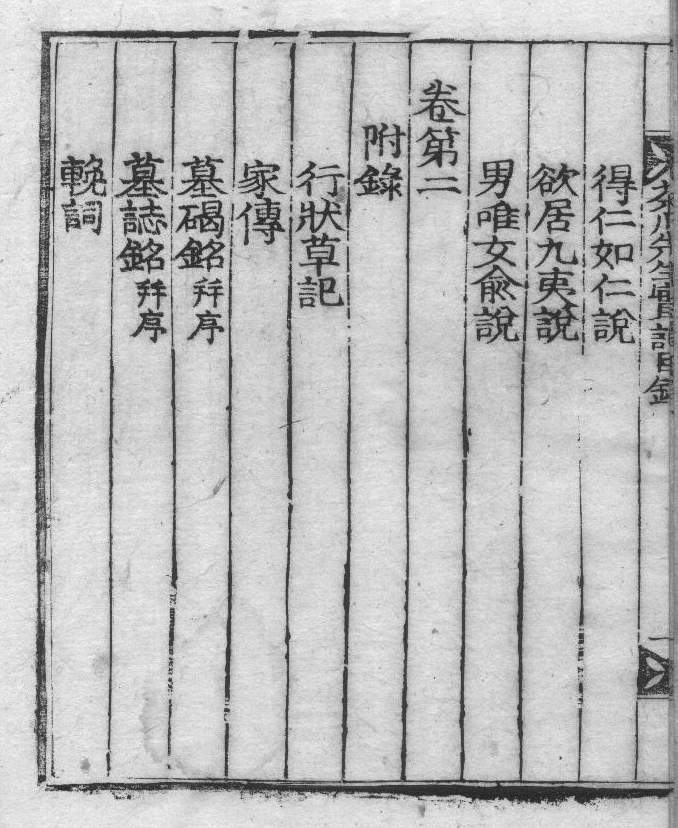 先生實記目錄
得仁如仁說
欲居九夷說
男唯女兪說
卷第二
附錄
行狀草記
家傳
墓碣銘 幷序
墓誌銘 幷序
輓詞
一